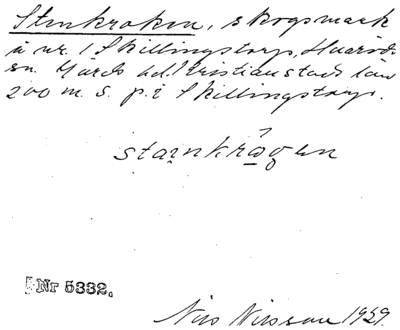 Stenkroken, skogsmark
å nr. 1 Skillingstorp, Huaröds
sn. Gärds hd. Kristianstads län
200 m. S. p. i Skillingstorp.
stainkrågen
Nr 5332.
Nils Nilsson 1929.